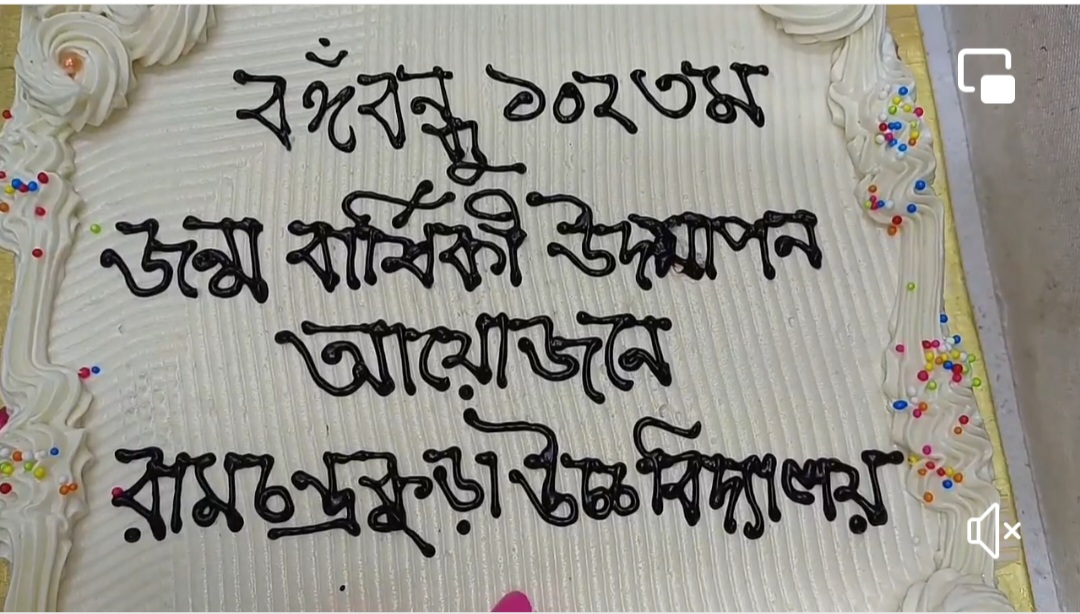 বঙ্গঁবন্ধু ১০২তম
জন্ম বার্ষিকী উদযাপন
আয়োজনে
রামচন্দ্রকুড়া উচ্চ বিদ্যালয়